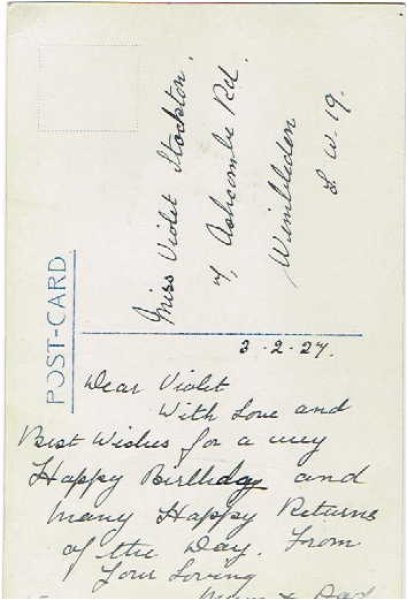 POST-CARD
Miss Violet Stockton.
7, Ashcombe Rd.
Wimbledon
S. W. 19.
3-2-27.
Dear Violet
With Love and
Best Wishes for a very
Happy Birthday and
Many Happy Returns
of the Day. From
Your Loving
Mum & Dad